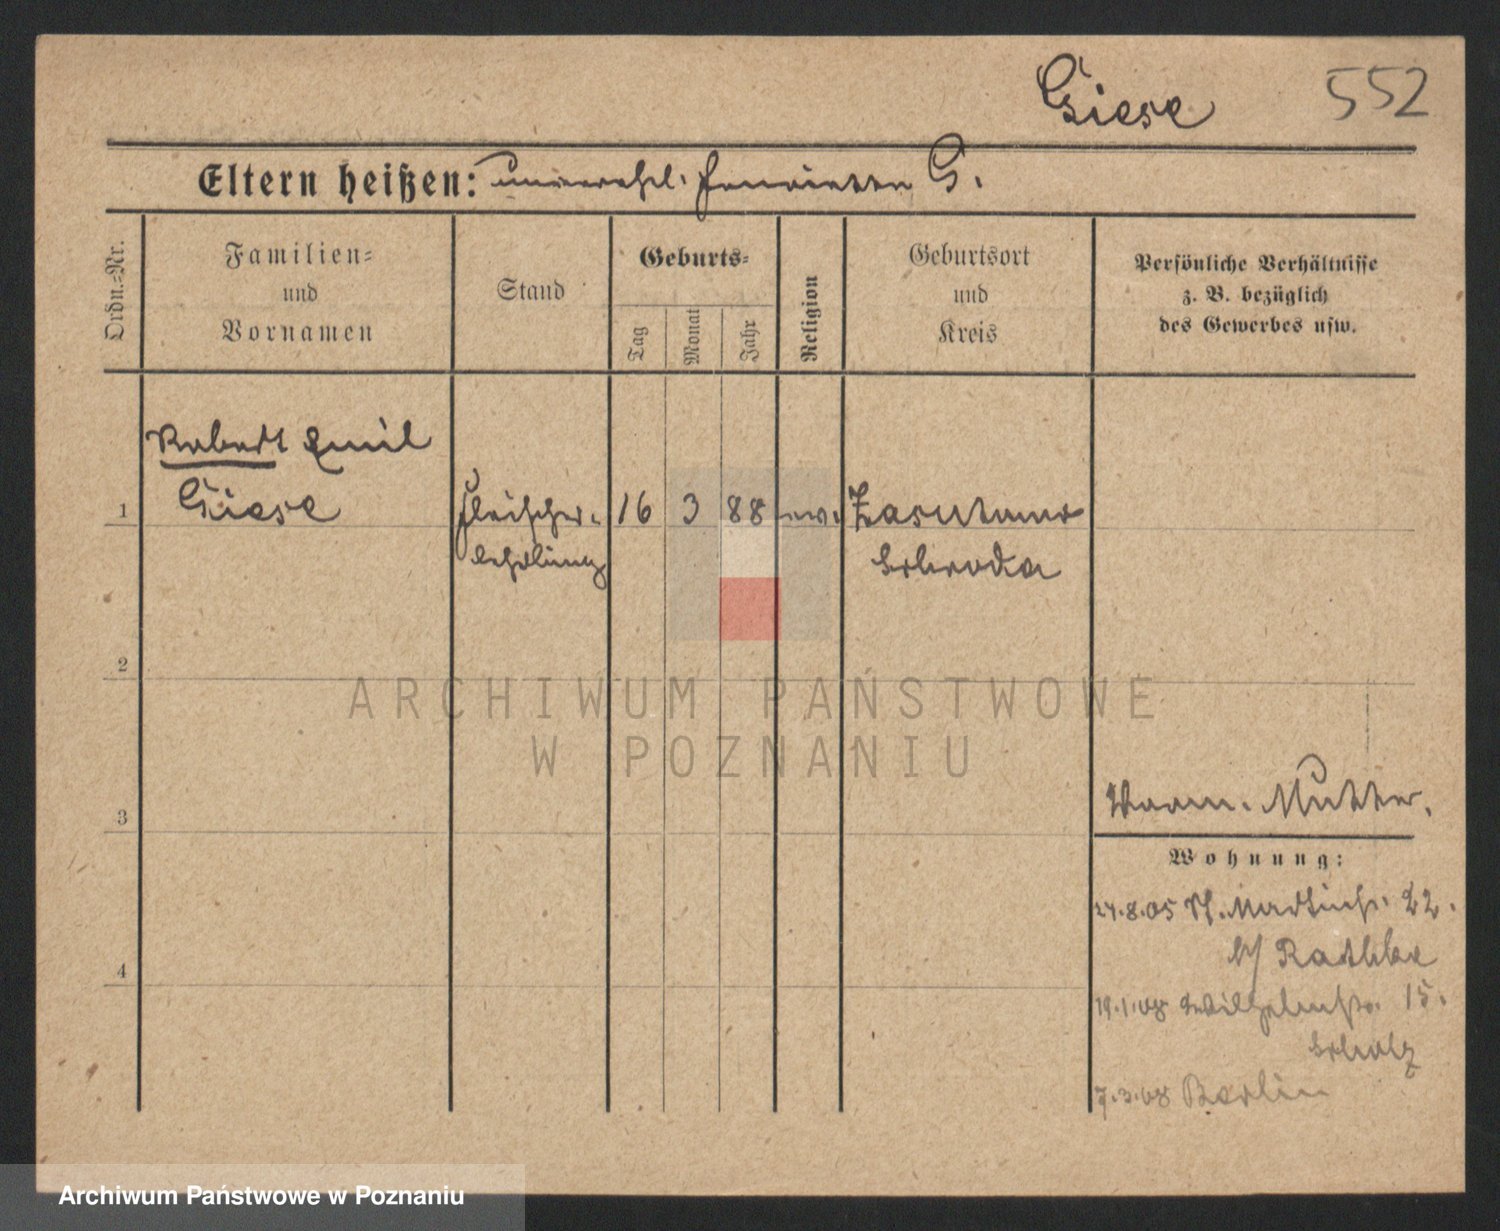 Giese 552
Eltern heißen: unverehel. Henriette G.
Ordn.-Nr.
Familien-
und
Vornamen
Stand
Geburts-
Tag
Monat
Jahr
Religion
Geburtsort
und
Kreis
Persönliche Verhältnisse
z. B. bezüglich
des Gewerbes usw.
Robert Emil
1 Giese Fleischer- 16 3 88 ev.
lehrling Schroda
2
ARCHIWUM PAŃSTWOWE
W POZNANIU
3
Vorm. Mutter.
Wohnung:
24.8.05 St. Martinstr. 22.
b/ Rathke
19.1.08 Wilhelmstr. 15.
Scholz
7.3.08 Berlin
4
Archiwum Państwowe w Poznaniu